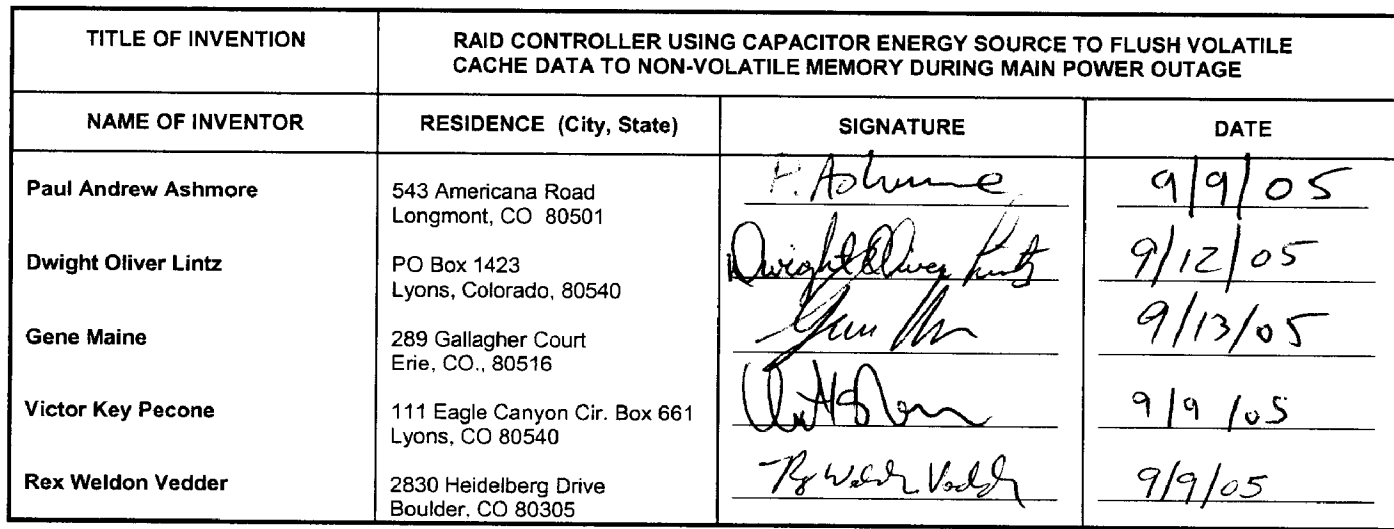 TITLE OF INVENTION
RAID CONTROLLER USING CAPACITOR ENERGY SOURCE TO FLUSH VOLATILE
CACHE DATA TO NON-VOLATILE MEMORY DURING MAIN POWER OUTAGE
NAME OF INVENTOR
RESIDENCE (City, State)
SIGNATURE
DATE
Paul Andrew Ashmore
543 Americana Road
Longmont, CO 80501
P. Ashmore
9/9/05
Dwight Oliver Lintz
PO Box 1423
Lyons, Colorado, 80540
Dwight Oliver Lintz
9/12/05
Gene Maine
289 Gallagher Court
Erie, CO., 80516
9/13/05
Victor Key Pecone
111 Eagle Canyon Cir. Box 661
Lyons, CO 80540
9/9/05
Rex Weldon Vedder
2830 Heidelberg Drive
Boulder, CO 80305
Rex Weldon Vedder
9/9/05